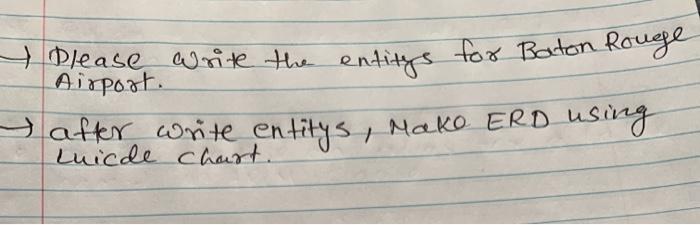 → Please write the entitys for Baton Rouge
Airport.
→ after write entitys, Make ERD using
Luicde chart.